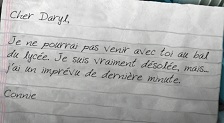 Cher Daryl,
Je ne pourrai pas venir avec toi au bal
du lycée. Je suis vraiment désolée, mais...
j'ai un imprévu de dernière minute.
Connie